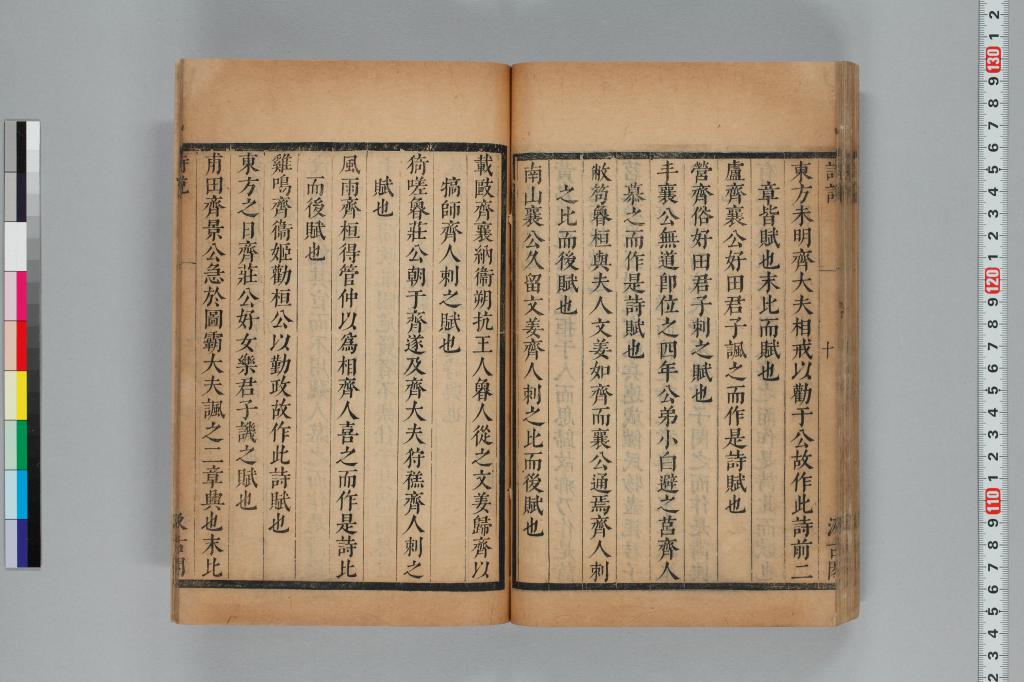 東方未明齊大夫相戒以勸于公故作此詩前二
章皆賦也末比而賦也
盧齊襄公好田君子諷之而作是詩賦也
營齊俗好田君子刺之賦也
丰襄公無道卽位之四年公弟小白避之莒齊人
慕之而作是詩賦也
敝笱魯桓與夫人文姜如齊而襄公通焉齊人刺
之比而後賦也
南山襄公久留文姜齊人刺之比而後賦也
載敺齊襄納衞朔抗王人魯人從之文姜歸齊以
犒師齊人刺之賦也
猗嗟魯莊公朝于齊遂及齊大夫狩禚齊人刺之
賦也
風雨齊桓得管仲以爲相齊人喜之而作是詩比
而後賦也
雞鳴齊衞姬勸桓公以勤政故作此詩賦也
東方之日齊莊公好女樂君子譏之賦也
甫田齊景公急於圖霸大夫諷之二章興也末比